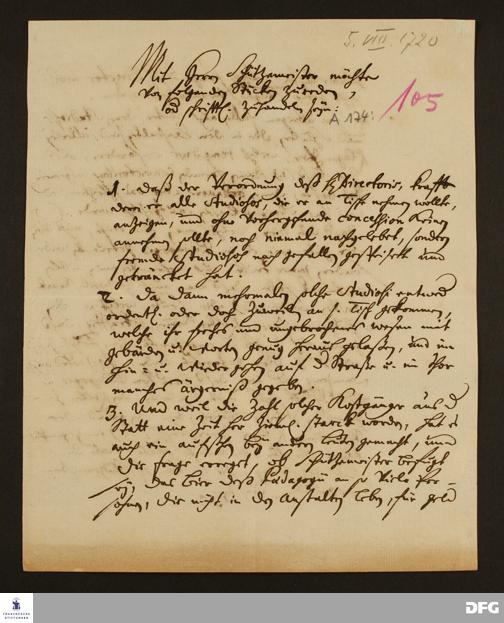 5. VIII. 1720
Mit Herrn Schützmeister möchte
von folgenden Stücken zu reden,
od schrifftl. zu handeln seyn:
A 174:
105
1. daß der Verordnung deß H. Directoris, krafft
deren er alle Studiosos, die er an Tisch nehmen wollte,
anzeigen, und ohne vorhergehende concession keinen
annehmen sollte, noch niemal nachgelebet, sondern
fremde Studiosos nach gefallen gespeiset und
geträncket hat.
2. Da dann mehrmalen solche Studiosi entwed
ordentl. oder doch zuweilen an s. Tisch gekommen,
welche ihr freches und ungebrochenes wesen mit
gebärden u. Worten genug heraus gelaßen, und im
hin- u. wiedergehen auf d Straße u. im Thor
manches ärgerniß gegeben.
3. Und weil die Zahl solcher Kostgänger aus d
Statt eine Zeit her ziemL. starck worden, hat es
auch ein aufsehen bey andern leuten gemacht, und
die frage erreget, ob Schützmeister befugt
sey, das bier deß Paedagogii an so viele Per-
sohnen, die nicht in den Anstalten leben, für geld
FRANCKESCHE
STIFTUNGEN
DFG